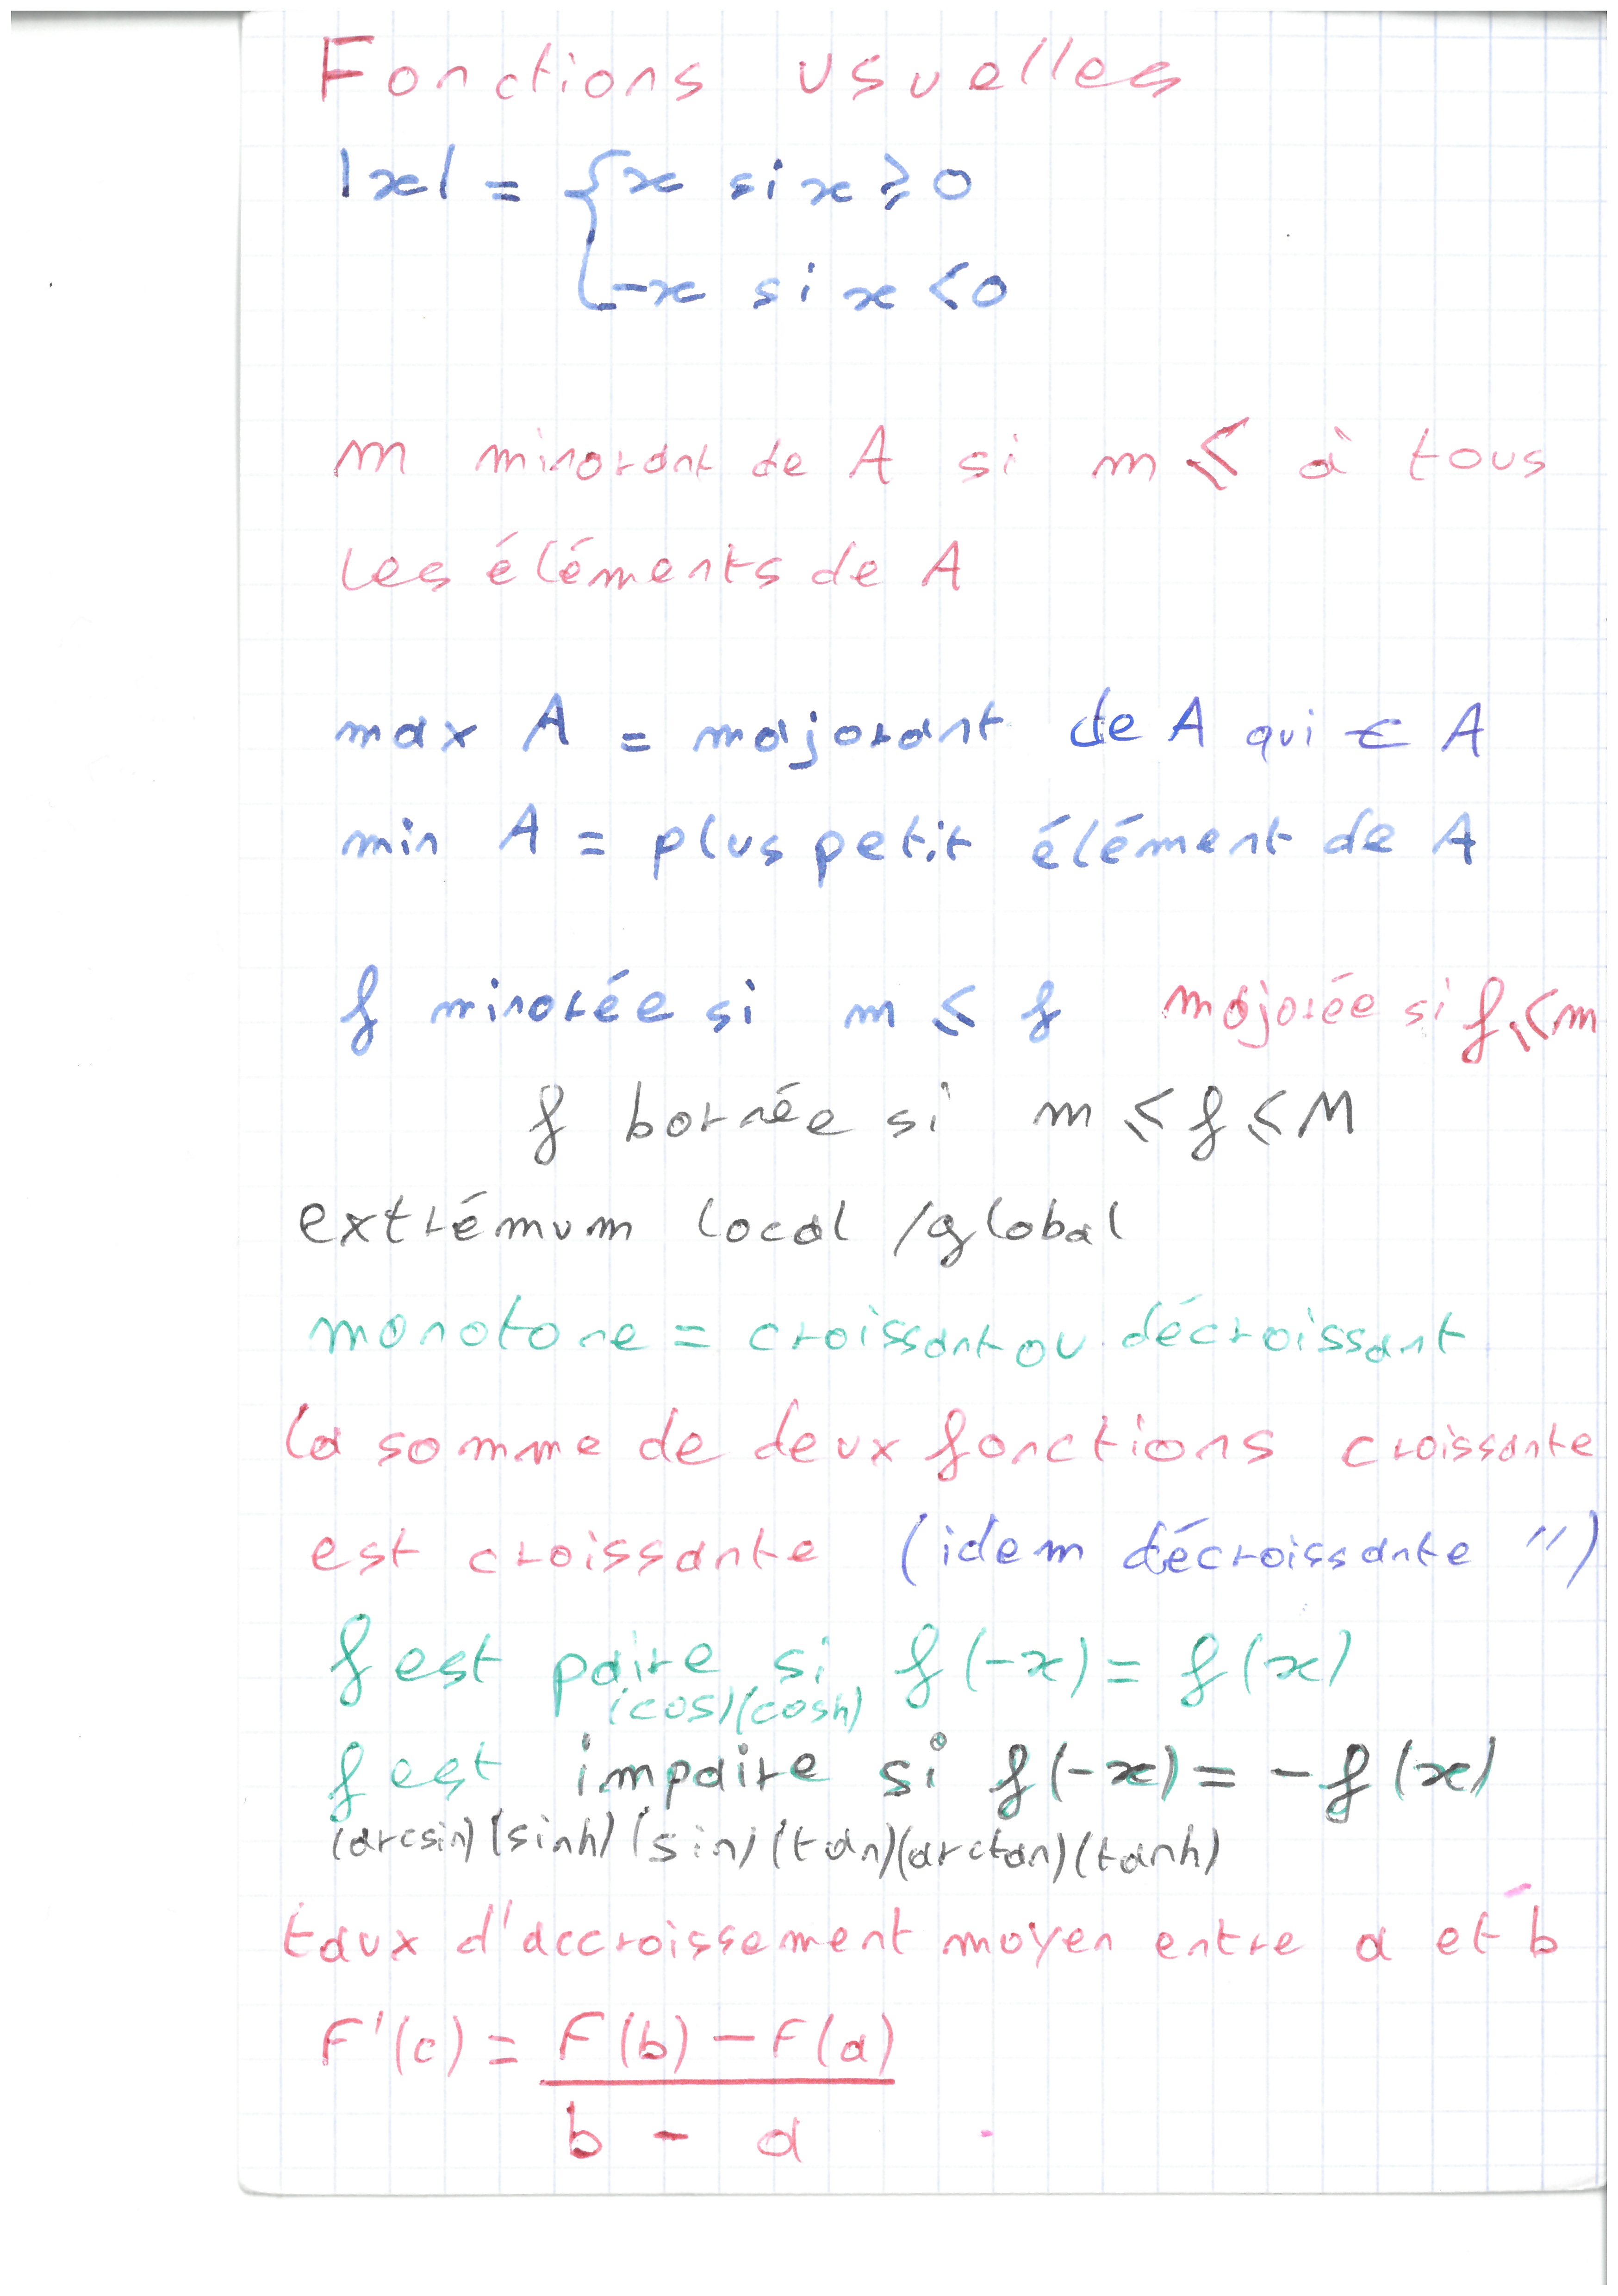 Fonctions usuelles
|x| = { x si x ⩾ 0
-x si x < 0
m minorant de A si m ⩽ à tous
les éléments de A
max A = majorant de A qui ∈ A
min A = plus petit élément de A
f minorée si m ⩽ f majorée si f ⩽ m
f bornée si m ⩽ f ⩽ M
extrémum local /global
monotone = croissant ou décroissant
la somme de deux fonctions croissante
est croissante (idem décroissante ")
f est paire si f(-x) = f(x)
(cos)(cosh)
f est impaire si f(-x) = -f(x)
(arcsin)(sinh)(sin)(tan)(arctan)(tanh)
taux d'accroissement moyen entre a et b
F'(c) = F(b) - F(a)
b - a